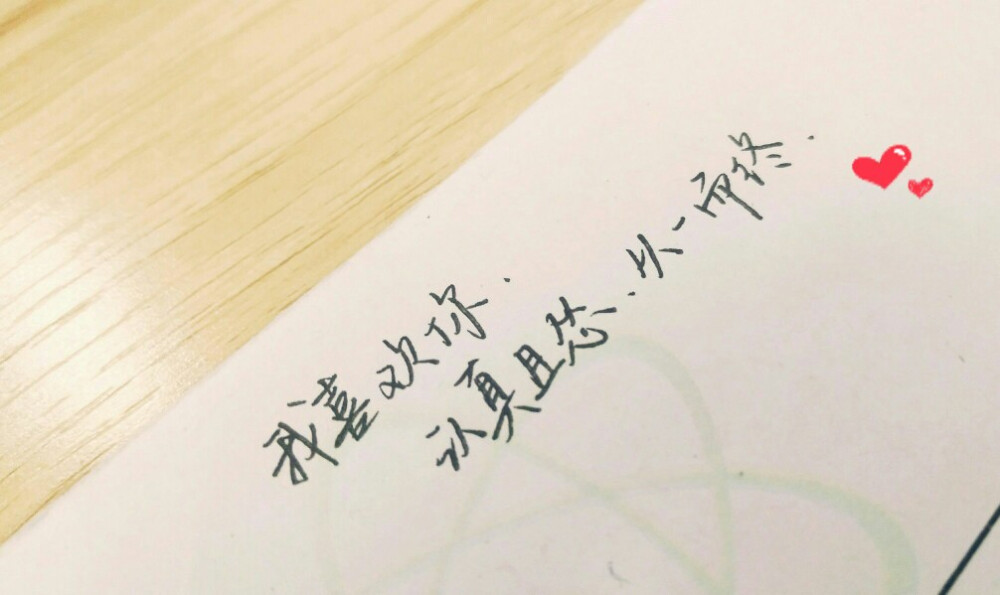 我喜欢你.
认真且怂.从一而终.